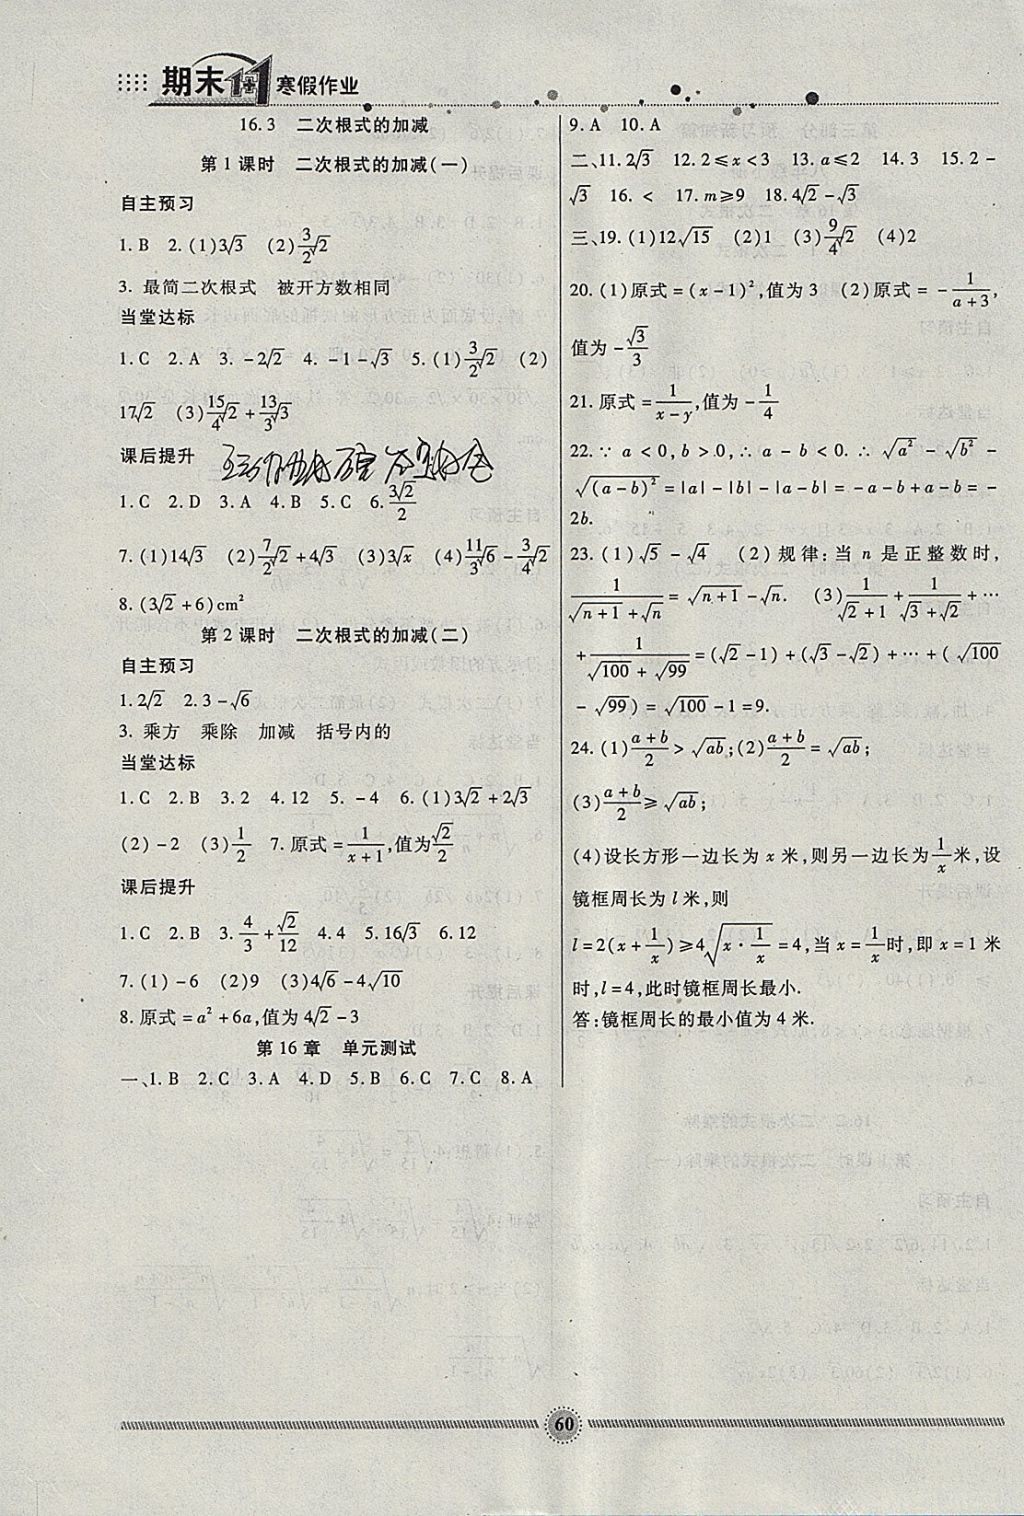 期末1+1寒假作业
16.3 二次根式的加减
第1课时 二次根式的加减(一)
自主预习
1.B 2.(1)3√3 (2)3/2√2
3. 最简二次根式 被开方数相同
当堂达标
1.C 2.A 3. -2√2 4. -1-√3 5.(1)3/2√2 (2)
17√2 (3)15/4√2+13/3√3
课后提升
1.C 2.D 3.A 4.B 5.C 6.3√2/2
7.(1)14√3 (2)7/2√2+4√3 (3)3√x (4)11/3√6-3/4√2
8.(3√2+6)cm²
第2课时 二次根式的加减(二)
自主预习
1.2√2 2.3-√6
3. 乘方 乘除 加减 括号内的
当堂达标
1.C 2.B 3.2 4.12 5. -4 6.(1)3√2+2√3
(2)-2 (3)1/2 7.原式=1/(x+1),值为√2/2
课后提升
1.C 2.B 3.4/3+√2/12 4.4 5.16√3 6.12
7.(1)-6 (2)9 (3)4√6-4√10
8.原式=a²+6a,值为4√2-3
第16章 单元测试
一、1.B 2.C 3.A 4.D 5.B 6.C 7.C 8.A
9.A 10.A
二、11.2√3 12.2≤x<3 13.a≤2 14.3 15.2-
√3 16.< 17.m≥9 18.4√2-√3
三、19.(1)12√15 (2)1 (3)9/4√2 (4)2
20.(1)原式=(x-1)²,值为3 (2)原式=-1/(a+3),
值为-√3/3
21.原式=1/(x-y),值为-1/4
22.∵a<0,b>0,∴a-b<0.∴√a²-√b²-
√(a-b)²=|a|-|b|-|a-b|=-a-b+a-b=-
2b.
23.(1)√5-√4 (2)规律:当n是正整数时,
1/(√n+1+√n)=√n+1-√n. (3)1/(√2+1)+1/(√3+√2)+…
+1/(√100+√99)=(√2-1)+(√3-√2)+…+(√100
-√99)=√100-1=9.
24.(1)(a+b)/2>√ab;(2)(a+b)/2=√ab;
(3)(a+b)/2≥√ab;
(4)设长方形一边长为x米,则另一边长为1/x米,设
镜框周长为l米,则
l=2(x+1/x)≥4√x·1/x=4,当x=1/x时,即x=1米
时,l=4,此时镜框周长最小.
答:镜框周长的最小值为4米.
60